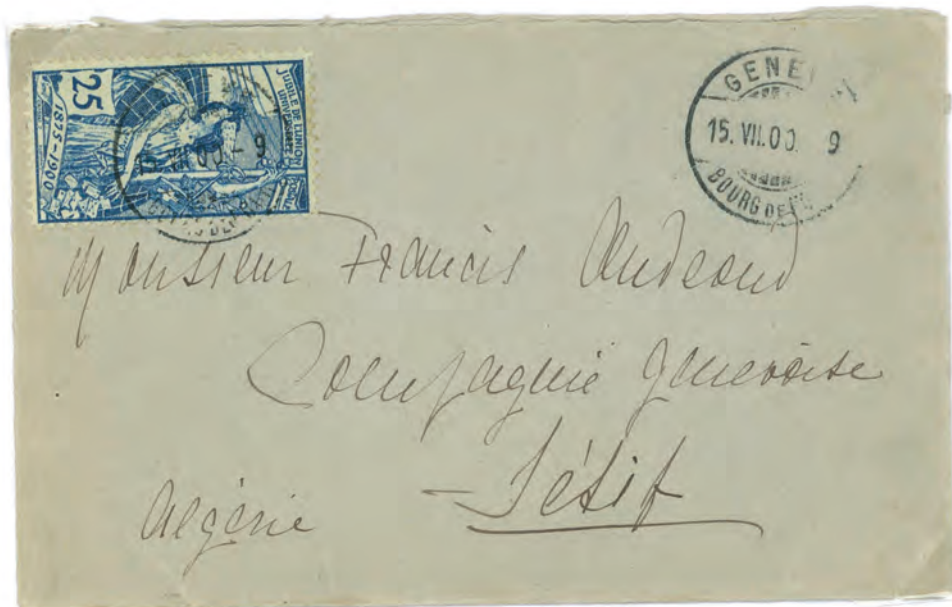 25
1875-1900
JUBILÉ DE L'UNION
UNIVERSELLE
15. VII. 00. - 9
GENE
15. VII. 00. 9
BOURG DE
Monsieur Francis Audeoud
Compagnie Genevoise
Sétif
Algérie